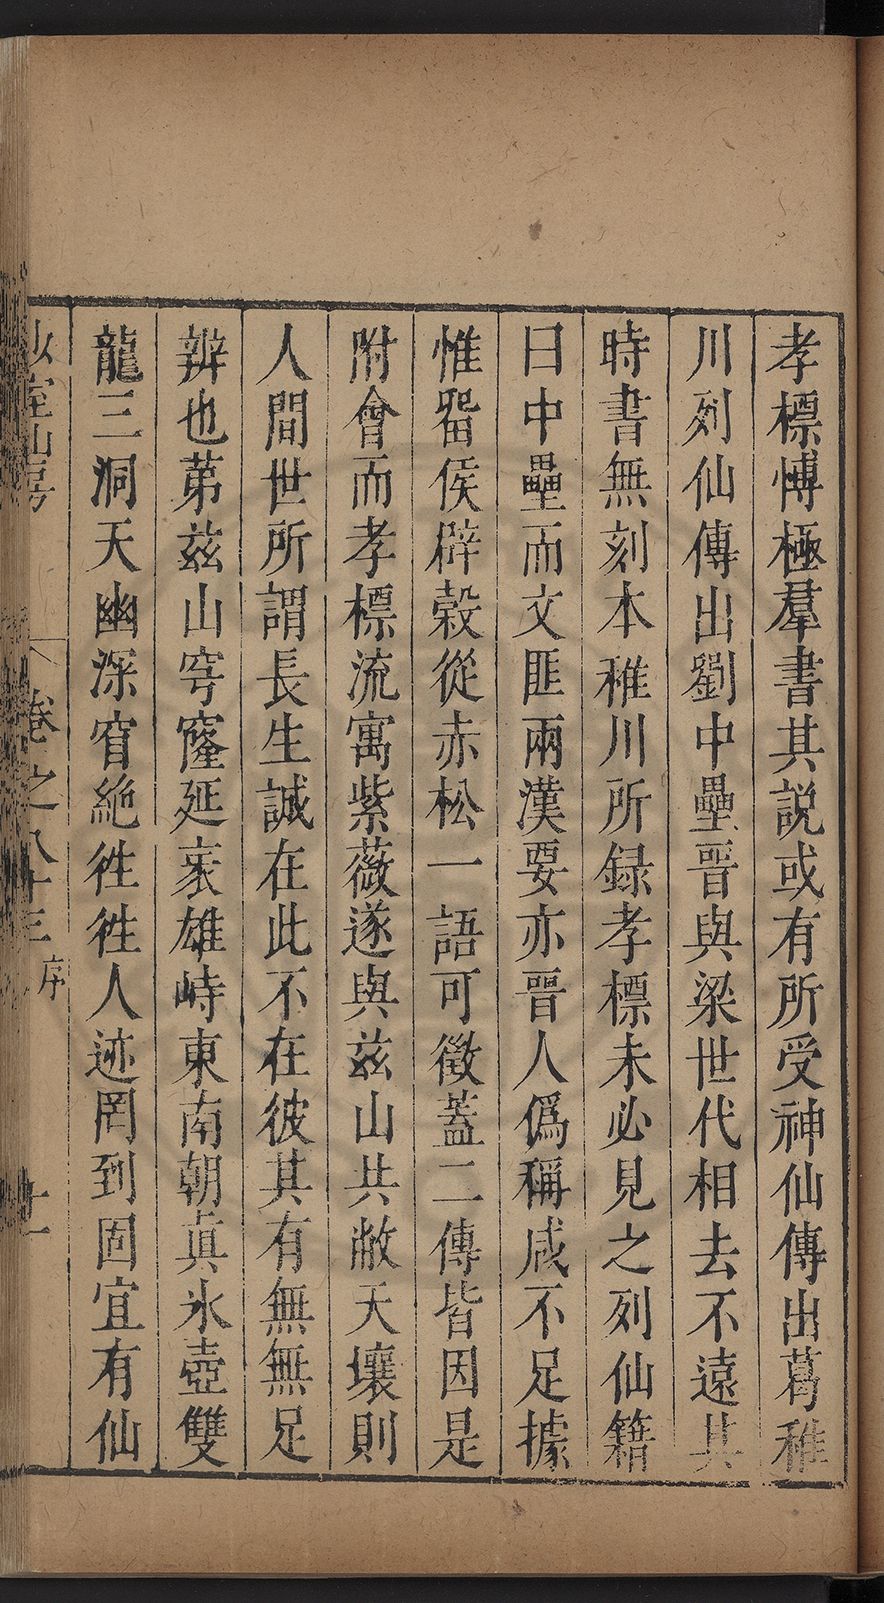 孝標愽極羣書其説或有所受神仙傳出葛稚
川列仙傳出劉中壘晉與梁世代相去不遠其
時書無刻本稚川所録孝標未必見之列仙籍
曰中壘而文匪兩漢要亦晉人僞稱咸不足據
惟畱侯辟榖從赤松一語可徵蓋二傳皆因是
附會而孝標流寓紫薇遂與兹山共敝天壤則
人間世所謂長生誠在此不在彼其有無無足
辨也苐兹山穹窿延袤雄峙東南朝真氷壺雙
龍三洞天幽深窅絶徃徃人迹罔到固宜有仙
少室山房 卷之八十三 序 十一